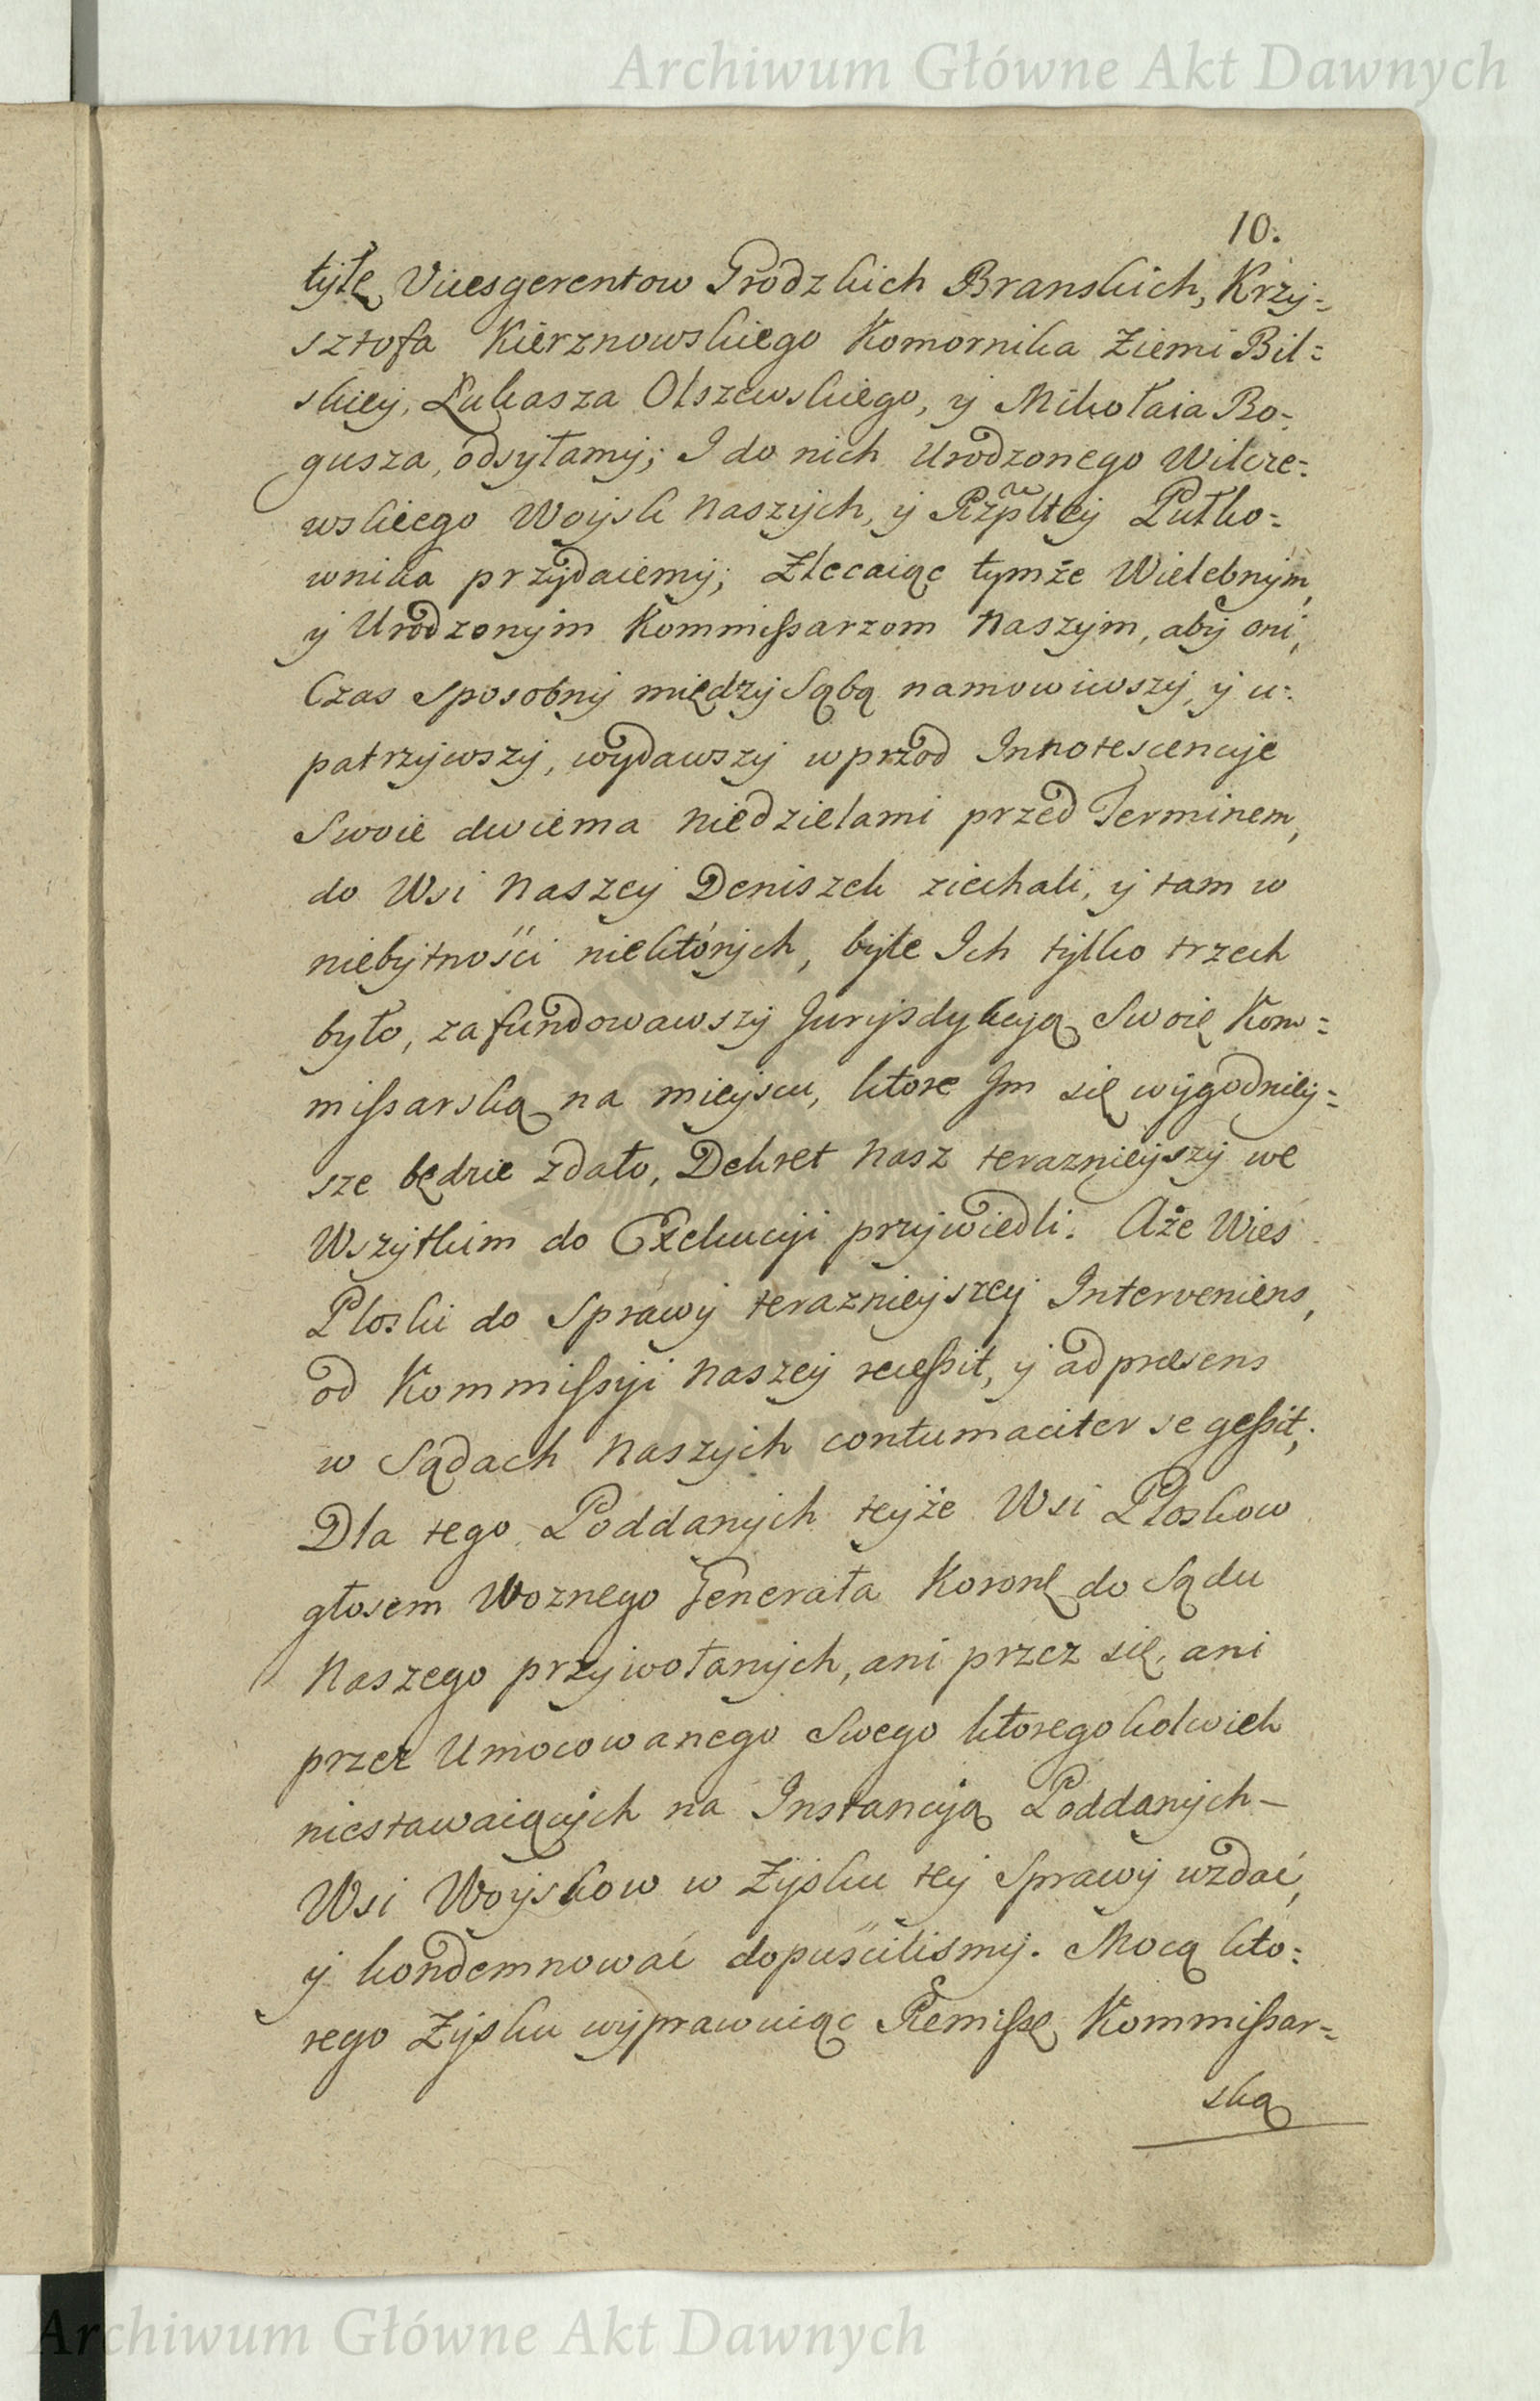 Archiwum Główne Akt Dawnych
10.
tyłę Vicesgerentow Grodzkich Branskich, Krzy=
sztofa Kierznowskiego Komornika Ziemi Bil=
skiey, Łukasza Olszewskiego, y Mikołaia Bo=
gusza, odsyłamy; I do nich Urodzonego Wilcze=
wskiego Woysk Naszych, y Rzpltey Pułko=
wnika przydaiemy; Zlecaiąc tymże Wielebnym,
y Urodzonym Kommissarzom Naszym, aby oni,
Czas sposobny między Sąbą namowiwszy, y u=
patrzywszy, wydawszy wprzod Innotescencye
Swoie dwiema niedzielami przed Terminem,
do Wsi Naszey Deniszek ziechali, y tam w
niebytności niektórych, byle Ich tylko trzech
było, zafundowawszy Jurysdykcyą Swoię Kom=
missarską na mieyscu, ktore Jm się wygodniey=
sze będzie zdało, Dekret Nasz terazniejszy we
Wszytkim do Exekucyi przywiedli. Aże Wieś
Ploski do Sprawy terazniejszey Interveniens,
od Kommissyi Naszey recessit, y ad præsens
w Sądach Naszych contumaciter se gessit;
Dla tego Poddanych teyże Wsi Ploskow
głosem Woznego Generała Koronę do Sądu
Naszego przywołanych, ani przez się, ani
przez Umocowanego Swego ktoregokolwiek
niestawaiących na Instancyą Poddanych –
Wsi Woyskow w Zysku tey Sprawy wzdać,
y kondemnować dopuściliśmy. Mocą kto=
rego Zysku wyprawuiąc Remissę Kommissar=
ską
Archiwum Główne Akt Dawnych